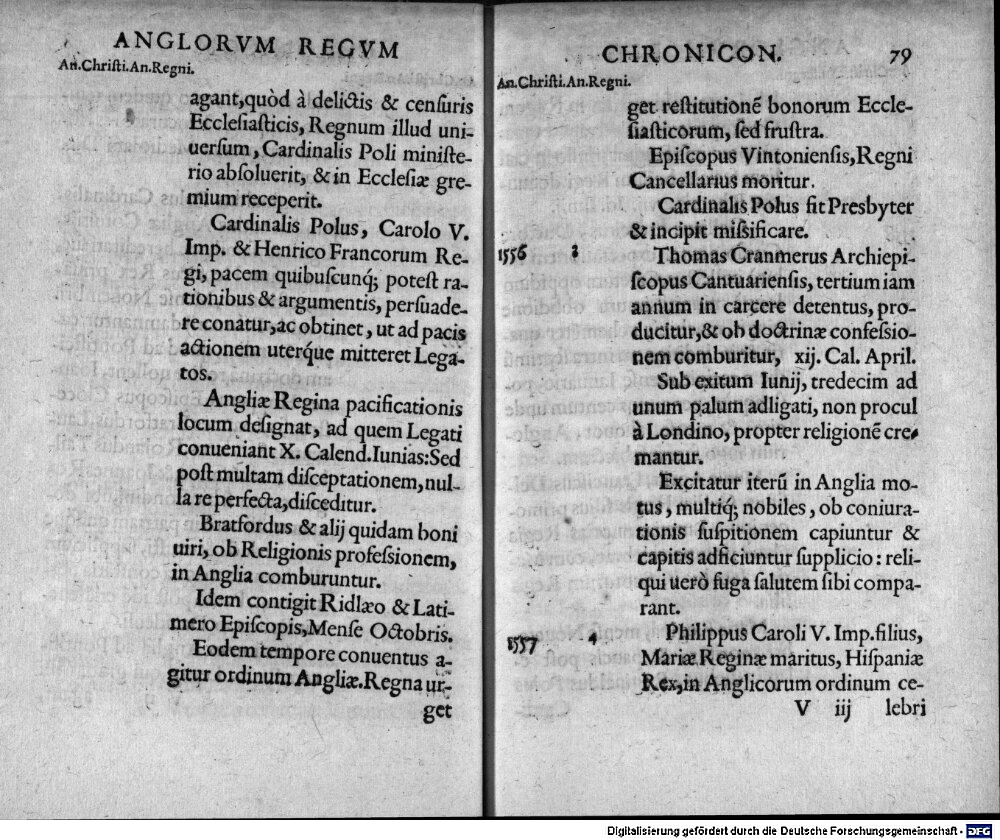 ANGLORVM REGVM
An.Chriſti.An.Regni.
agant,quòd à delictis & cenſuris
Eccleſiaſticis, Regnum illud uni-
uerſum, Cardinalis Poli miniſte-
rio abſoluerit, & in Eccleſiæ gre-
mium receperit.
Cardinalis Polus, Carolo V.
Imp. & Henrico Francorum Re-
gi, pacem quibuſcunq; poteſt ra-
tionibus & argumentis, perſuade-
re conatur, ac obtinet, ut ad pacis
actionem uterq́ue mitteret Lega-
tos.
Angliæ Regina pacificationis
locum deſignat, ad quem Legati
conueniant X. Calend. Iunias: Sed
poſt multam diſceptationem, nul-
la re perfecta, diſceditur.
Bratfordus & alij quidam boni
uiri, ob Religionis profeſsionem,
in Anglia comburuntur.
Idem contigit Ridlæo & Lati-
mero Epiſcopis, Menſe Octobris.
Eodem tempore conuentus a-
gitur ordinum Angliæ. Regna ur-
get
CHRONICON. 79
An.Chriſti.An.Regni.
get reſtitutionē bonorum Eccle-
ſiaſticorum, ſed fruſtra.
Epiſcopus Vintonienſis, Regni
Cancellarius moritur.
Cardinalis Polus fit Presbyter
& incipit miſsificare.
1556 2 Thomas Cranmerus Archiepi-
ſcopus Cantuarienſis, tertium iam
annum in carcere detentus, pro-
ducitur, & ob doctrinæ confeſsio-
nem comburitur, xij. Cal. April.
Sub exitum Iunij, tredecim ad
unum palum adligati, non procul
à Londino, propter religionē cre-
mantur.
Excitatur iterū in Anglia mo-
tus, multiq́; nobiles, ob coniura-
tionis ſuſpitionem capiuntur &
capitis adficiuntur ſupplicio: reli-
qui uerò fuga ſalutem ſibi compa-
rant.
1557 4 Philippus Caroli V. Imp. filius,
Mariæ Reginæ maritus, Hiſpaniæ
Rex, in Anglicorum ordinum ce-
V iij lebri
Digitalisierung gefördert durch die Deutsche Forschungsgemeinschaft - DFG